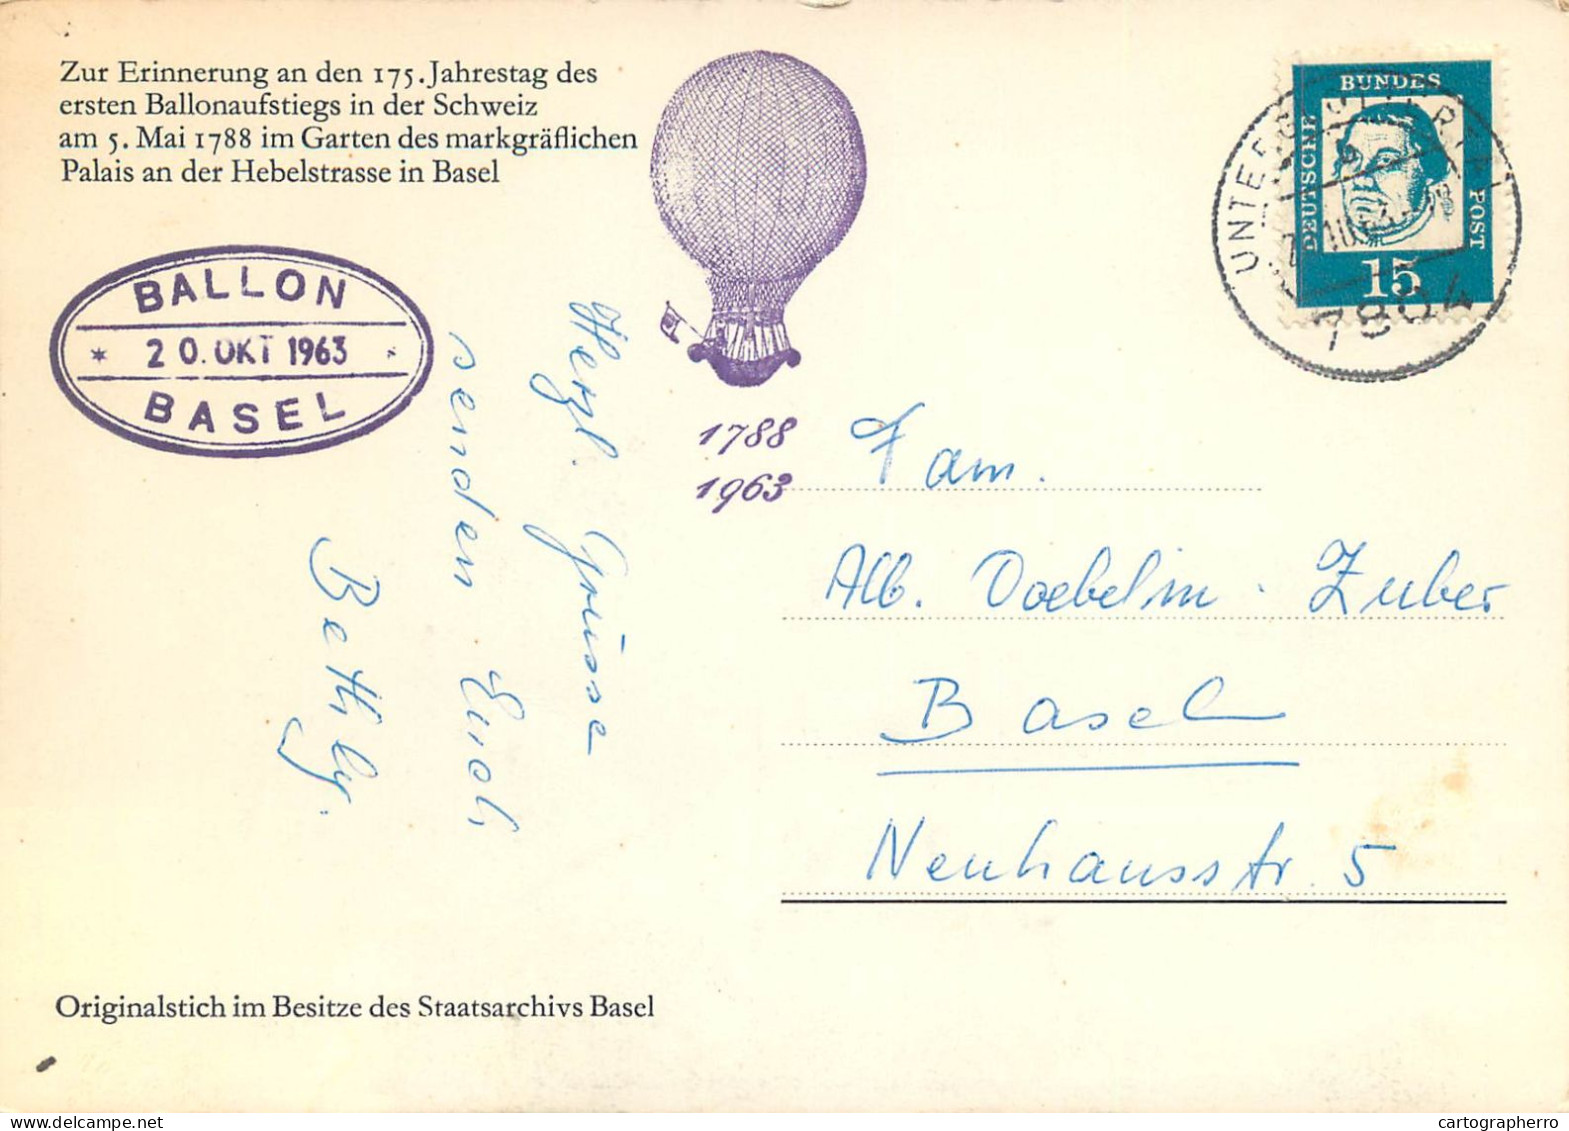 Zur Erinnerung an den 175. Jahrestag des
ersten Ballonaufstiegs in der Schweiz
am 5. Mai 1788 im Garten des markgräflichen
Palais an der Hebelstrasse in Basel
BALLON
* 20. OKT 1963 *
BASEL
1788
1963
DEUTSCHE
BUNDES
POST
15
7804
Herzl. Grüsse
senden Euch
Bethly.
Fam.
Alb. Doebelin - Zuber
Basel
Neuhausstr. 5
Originalstich im Besitze des Staatsarchivs Basel
cartographerro